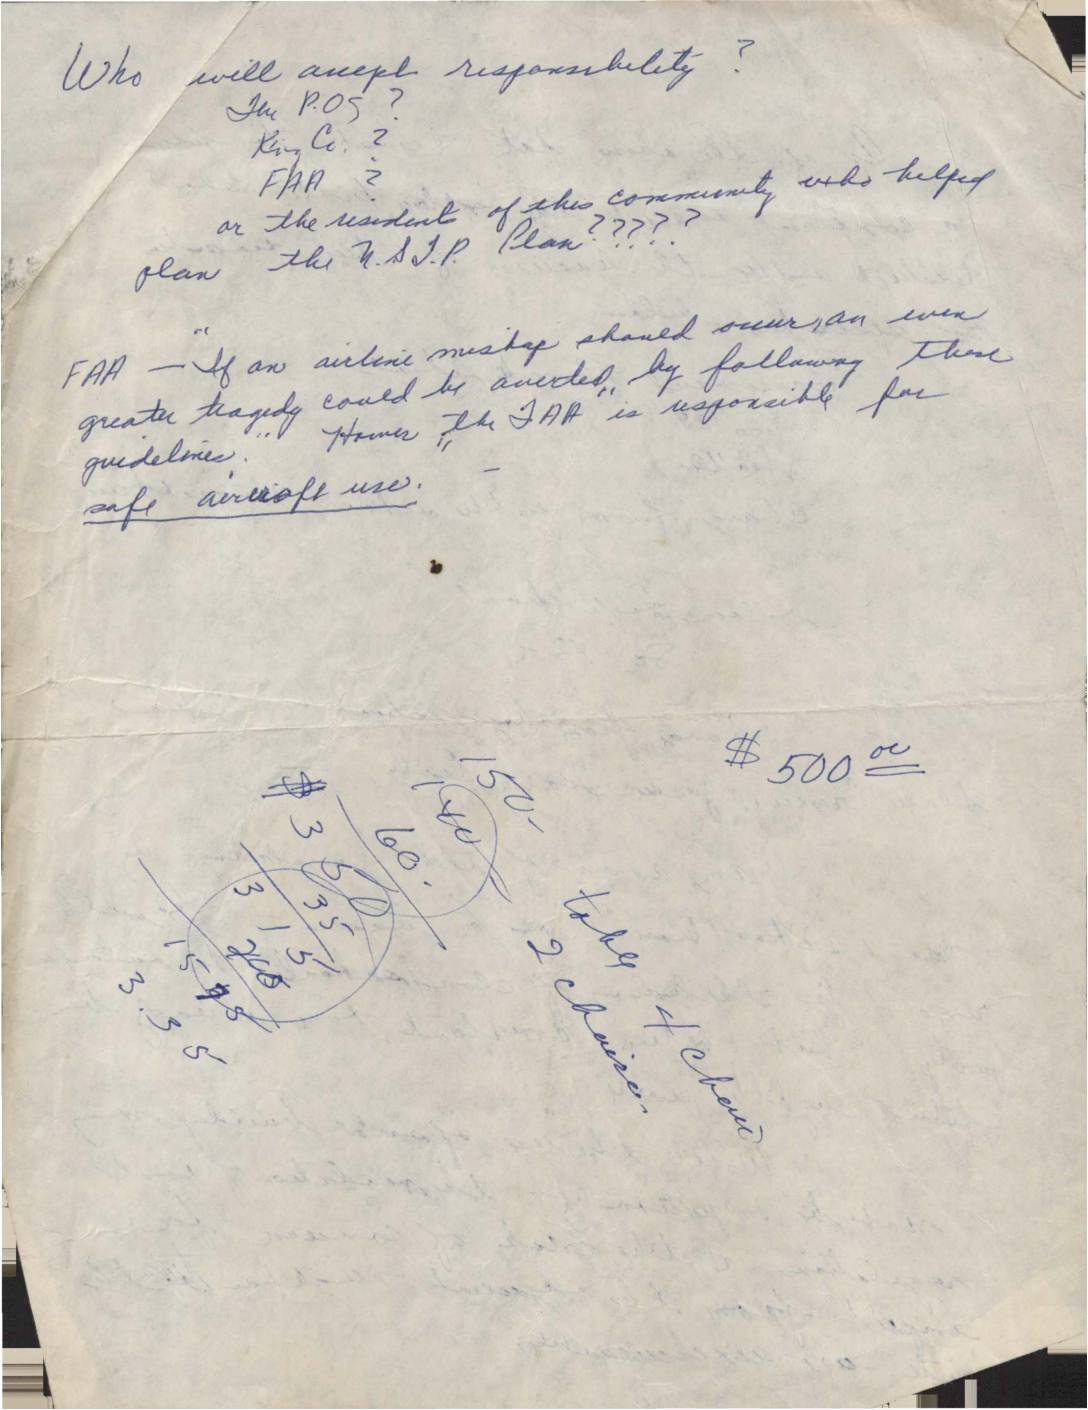 Who will accept responsibility ?
The P.OS ?
King Co. ?
FAA ?
or the residents of this community who helped
plan the N.S.T.P. Plan?????
FAA — "If an airline mishap should occur, an even
greater tragedy could be averted, by following these
guidelines." "the FAA" is responsible for
safe aircraft use.
$ 500 00
150-
140
60.
$ 3 50
35
3 15
3.35
table 4 chair
2 chairs